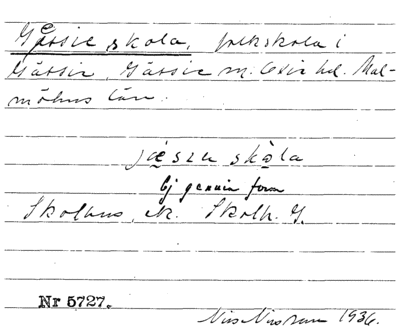 Gässie skola, folkskola i
Gässie, Gässie sn. Oxie hd. Mal-
möhus län.
jæszu skola
Ej genuin form
Skolhus, ek. Skolh. G.
Nr 5727.
Nils Nilsson 1936.